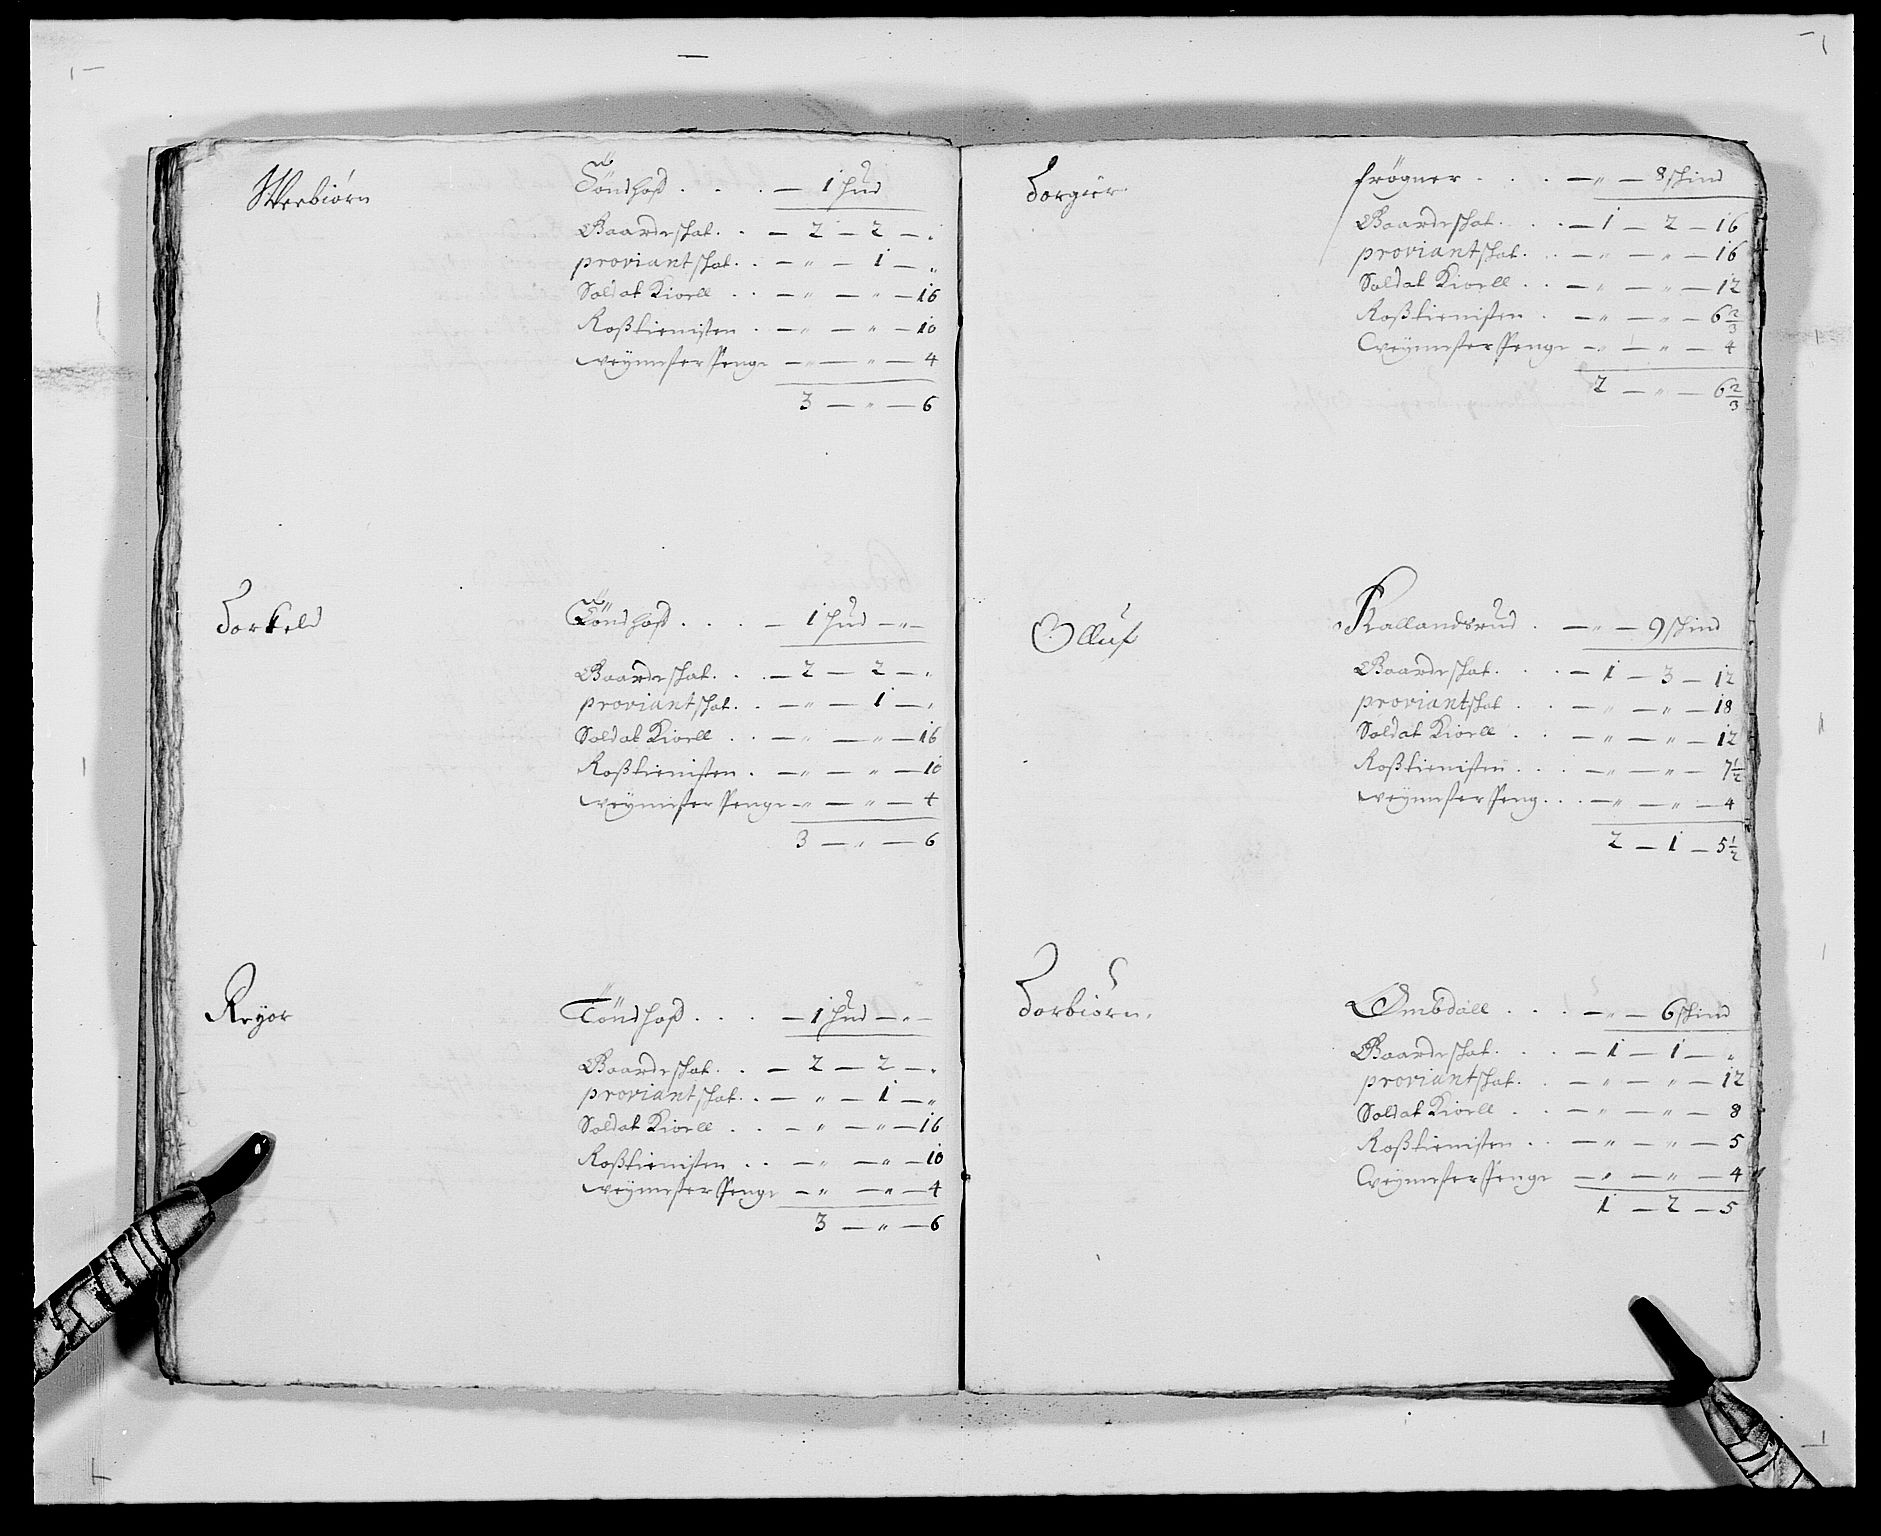 Werbiørn Töndhoff . . . — 1 hud
Baardeskat . . — 2 — 2 — „
proviantskat . . — „ — 1 — „
Soldat Kioell . . — „ — „ — 16
Rosstienisten . — „ — „ — 10
weÿmester Penge — „ — „ — 4
3 — „ — 6
Torkeld Töndhoff . . . — 1 hud — „ —
Baardeskat . . . — 2 — 2 — „
proviantskat . . — „ — 1 — „
Soldat Kioell . . — „ — „ — 16
Rosstienisten . — „ — „ — 10
weÿmester Penge — „ — „ — 4
3 — „ — 6
Reyor Töndhoff . . . — 1 hud — „ —
Baardeskat . . — 2 — 2 — „
proviantskat . . — „ — 1 — „
Soldat Kioell . . — „ — „ — 16
Rosstienisten . . — „ — „ — 10
weÿmester Penge — „ — „ — 4
3 — „ — 6
Torgier frögner . . . — „ — 8 skind
Baardeskat . . . — 1 — 2 — 16
proviantskat . . — „ — „ — 16
Soldat Kioell . . — „ — „ — 12
Rosstienisten . — „ — „ — 6 2/3
weÿmester Penge — „ — „ — 4
2 — „ — 6 2/3
Olluf Kallandsrud . — „ — 9 skind
Baardeskat . . . — 1 — 3 — 12
proviantskat . . — „ — „ — 18
Soldat Kioell . . — „ — „ — 12
Rosstienisten . . . — „ — „ — 7 1/2
weÿmester Peng . . . — „ — „ — 4
2 — 1 — 5 1/2
Torbiørn. Ombdall . . . — „ — 6 skind
Baardeskat . . . — 1 — 1 — „
proviantskat . . — „ — „ — 12
Soldat Kioell . . — „ — „ — 8
Rosstienisten . . — „ — „ — 5
weÿmester Penge — „ — „ — 4
1 — 2 — 5